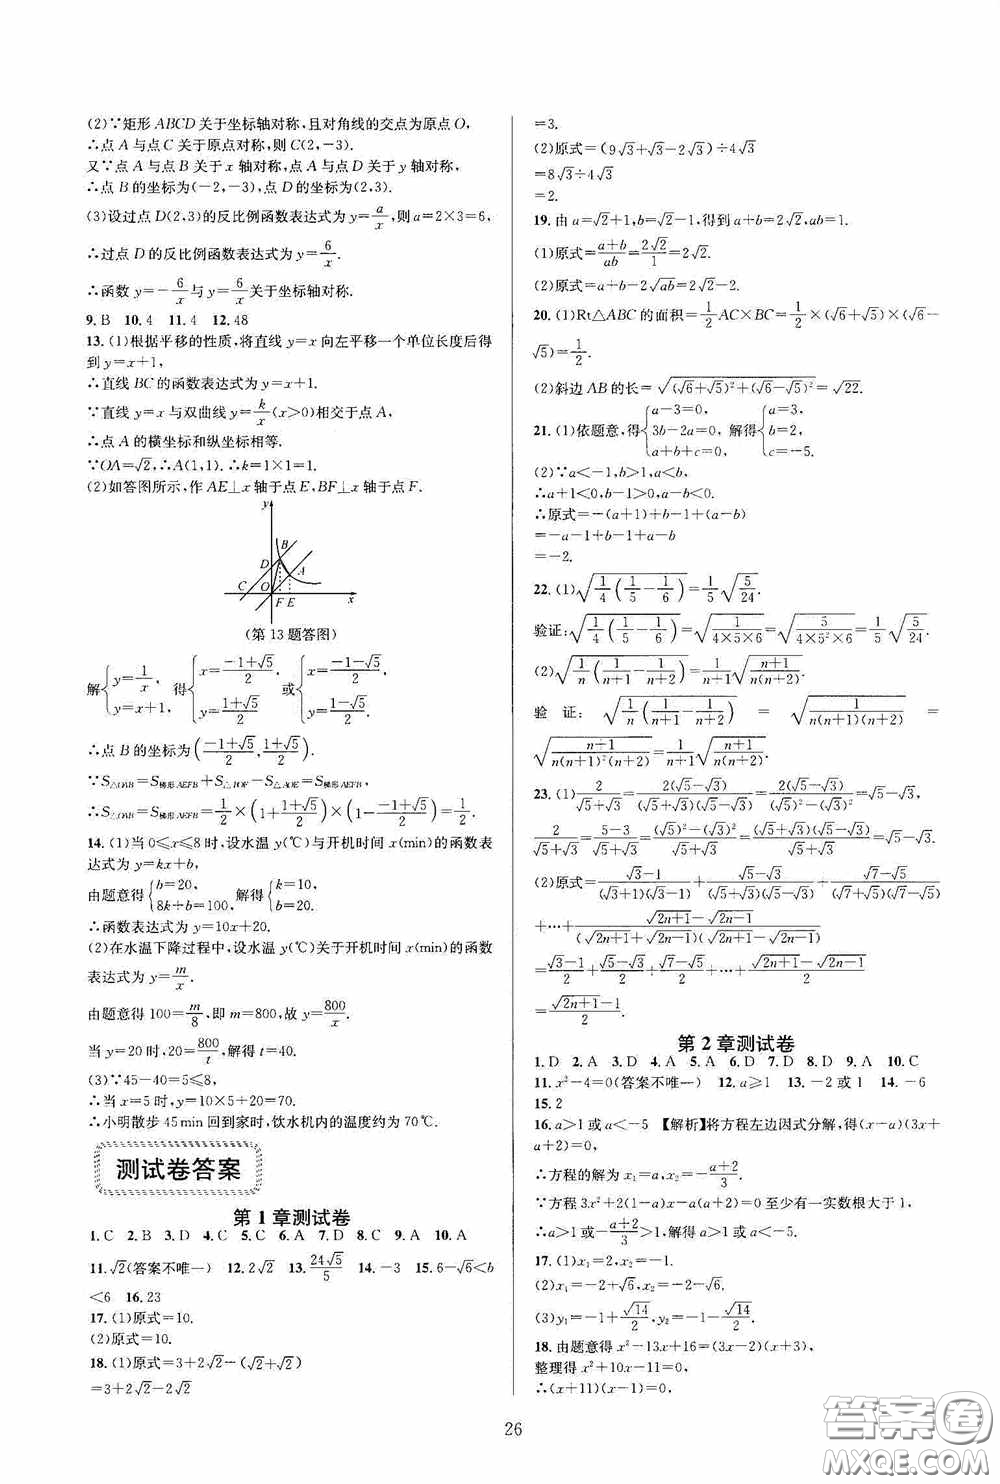 (2)∵矩形ABCD关于坐标轴对称,且对角线的交点为原点O,
∴点A与点C关于原点对称,则C(2,-3).
又∵点A与点B关于x轴对称,点A与点D关于y轴对称,
∴点B的坐标为(-2,-3),点D的坐标为(2,3).
(3)设过点D(2,3)的反比例函数表达式为y=a/x,则a=2×3=6,
∴过点D的反比例函数表达式为y=6/x.
∴函数y=-6/x与y=6/x关于坐标轴对称.
9.B 10.4 11.4 12.48
13.(1)根据平移的性质,将直线y=x向左平移一个单位长度后得
到y=x+1,
∴直线BC的函数表达式为y=x+1.
∵直线y=x与双曲线y=k/x(x>0)相交于点A,
∴点A的横坐标和纵坐标相等.
∵OA=√2,∴A(1,1).∴k=1×1=1.
(2)如答图所示,作AE⊥x轴于点E,BF⊥x轴于点F.
y
B
D
A
C
O
F E
x
(第13题答图)
解{y=1/x, y=x+1, 得{x=(-1+√5)/2, y=(1+√5)/2 或{x=(-1-√5)/2, y=(1-√5)/2.
∴点B的坐标为((-1+√5)/2,(1+√5)/2).
∵S△OAB=S梯形AEFB+S△BOF-S△AOE=S梯形AEFB,
∴S△OAB=S梯形AEFB=1/2×(1+(1+√5)/2)×(1-(-1+√5)/2)=1/2.
14.(1)当0≤x≤8时,设水温y(℃)与开机时间x(min)的函数表
达式为y=kx+b,
由题意得{b=20, 8k+b=100, 解得{k=10, b=20.
∴函数表达式为y=10x+20.
(2)在水温下降过程中,设水温y(℃)关于开机时间x(min)的函数
表达式为y=m/x.
由题意得100=m/8,即m=800,故y=800/x.
当y=20时,20=800/t,解得t=40.
(3)∵45-40=5≤8,
∴当x=5时,y=10×5+20=70.
∴小明散步45min回到家时,饮水机内的温度约为70℃.
测试卷答案
第1章测试卷
1.C 2.B 3.D 4.C 5.C 6.A 7.D 8.C 9.A 10.A
11.√2(答案不唯一) 12.2√2 13.24√5/5 14.-3 15.6-√6<b
<6 16.23
17.(1)原式=10.
(2)原式=10.
18.(1)原式=3+2√2-(√2+√2)
=3+2√2-2√2
=3.
(2)原式=(9√3+√3-2√3)÷4√3
=8√3÷4√3
=2.
19.由a=√2+1,b=√2-1,得到a+b=2√2,ab=1.
(1)原式=(a+b)/ab=2√2/1=2√2.
(2)原式=a+b-2√ab=2√2-2.
20.(1)Rt△ABC的面积=1/2AC×BC=1/2×(√6+√5)×(√6-
√5)=1/2.
(2)斜边AB的长=√((√6+√5)²+(√6-√5)²)=√22.
21.(1)依题意,得{a-3=0, 3b-2a=0, a+b+c=0, 解得{a=3, b=2, c=-5.
(2)∵a<-1,b>1,a<b,
∴a+1<0,b-1>0,a-b<0.
∴原式=-(a+1)+b-1+(a-b)
=-a-1+b-1+a-b
=-2.
22.(1)√(1/4(1/5-1/6))=1/5√(5/24).
验证:√(1/4(1/5-1/6))=√(1/(4×5×6))=√(5/(4×5²×6))=1/5√(5/24).
(2)√(1/n(1/(n+1)-1/(n+2)))=1/(n+1)√((n+1)/(n(n+2))).
验 证: √(1/n(1/(n+1)-1/(n+2))) = √(1/(n(n+1)(n+2))) =
√((n+1)/(n(n+1)²(n+2)))=1/(n+1)√((n+1)/(n(n+2))).
23.(1)2/(√5+√3)=2(√5-√3)/((√5+√3)(√5-√3))=2(√5-√3)/((√5)²-(√3)²)=√5-√3,
2/(√5+√3)=(5-3)/(√5+√3)=((√5)²-(√3)²)/(√5+√3)=(√5+√3)(√5-√3)/(√5+√3)=√5-√3.
(2)原式=(√3-1)/((√3+1)(√3-1))+(√5-√3)/((√5+√3)(√5-√3))+(√7-√5)/((√7+√5)(√7-√5))
+…+(√(2n+1)-√(2n-1))/((√(2n+1)+√(2n-1))(√(2n+1)-√(2n-1)))
=(√3-1)/2+(√5-√3)/2+(√7-√5)/2+…+(√(2n+1)-√(2n-1))/2
=(√(2n+1)-1)/2.
第2章测试卷
1.D 2.A 3.D 4.A 5.A 6.D 7.D 8.D 9.A 10.C
11.x²-4=0(答案不唯一) 12.a≥1 13.-2或1 14.-6
15.2
16.a>1或a<-5 【解析】将方程左边因式分解,得(x-a)(3x+
a+2)=0,
∴方程的解为x₁=a,x₂=-(a+2)/3.
∵方程3x²+2(1-a)x-a(a+2)=0至少有一实数根大于1,
∴a>1或-(a+2)/3>1,解得a>1或a<-5.
17.(1)x₁=2,x₂=-1.
(2)x₁=-2+√6,x₂=-2-√6.
(3)y₁=-1+√14/2,y₂=-1-√14/2.
18.由题意得x²-13x+16=(3x-2)(x+3),
整理得x²+10x-11=0.
∴(x+11)(x-1)=0.
26
答案卷
MXQE.COM